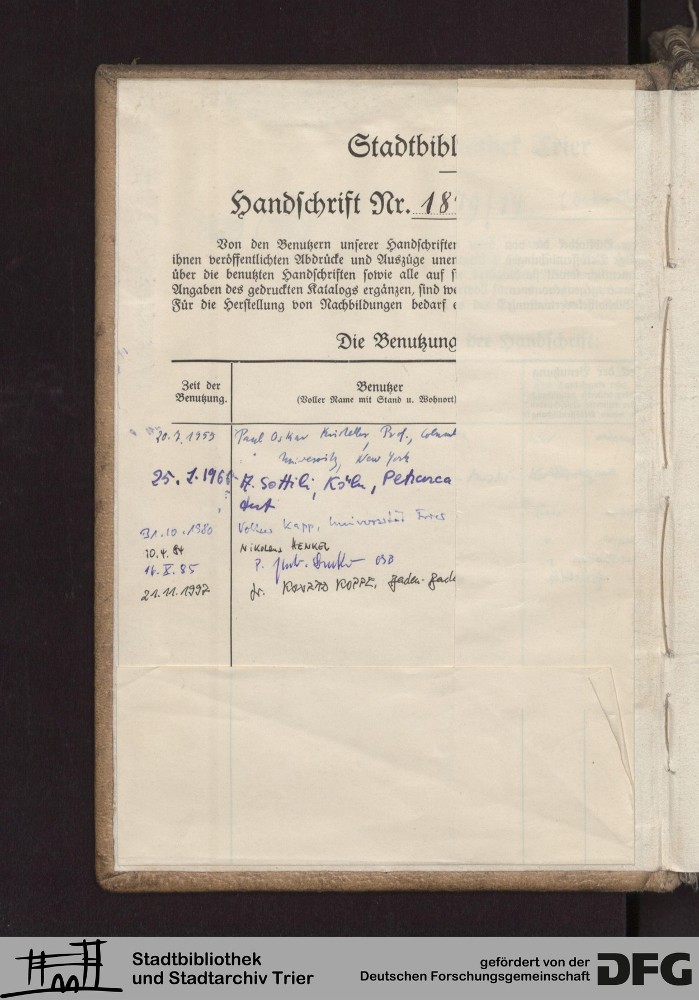 Stadtbibl
Handschrift Nr. 18
Von den Benutzern unserer Handschrifter
ihnen veröffentlichten Abdrücke und Auszüge uner
über die benutzten Handschriften sowie alle auf
Angaben des gedruckten Katalogs ergänzen, sind we
Für die Herstellung von Nachbildungen bedarf e
Die Benutzung
Zeit der
Benutzung.
Benutzer
(Voller Name mit Stand u. Wohnort)
20.7.1959 Paul Oskar Kristeller, Prof., Columb
University, New York
25.7.1966 A. Sottili, Köln, Petrarca
31.10.1980 Kapp, Universität Trier
10.4.84 Nikolaus HENKEL
14.X.85 P. OSB
21.11.1997 Dr. Baden-Bade
Stadtbibliothek
und Stadtarchiv Trier
gefördert von der
Deutschen Forschungsgemeinschaft
DFG